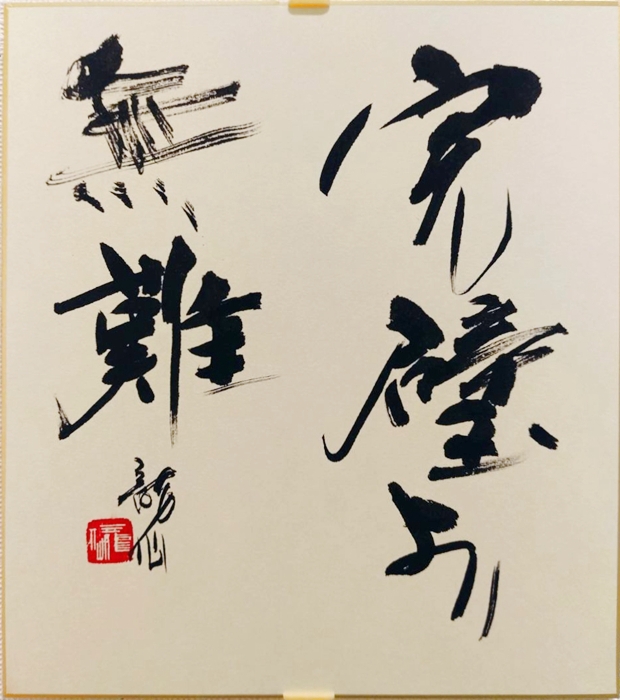 完璧より
無難
龍仙